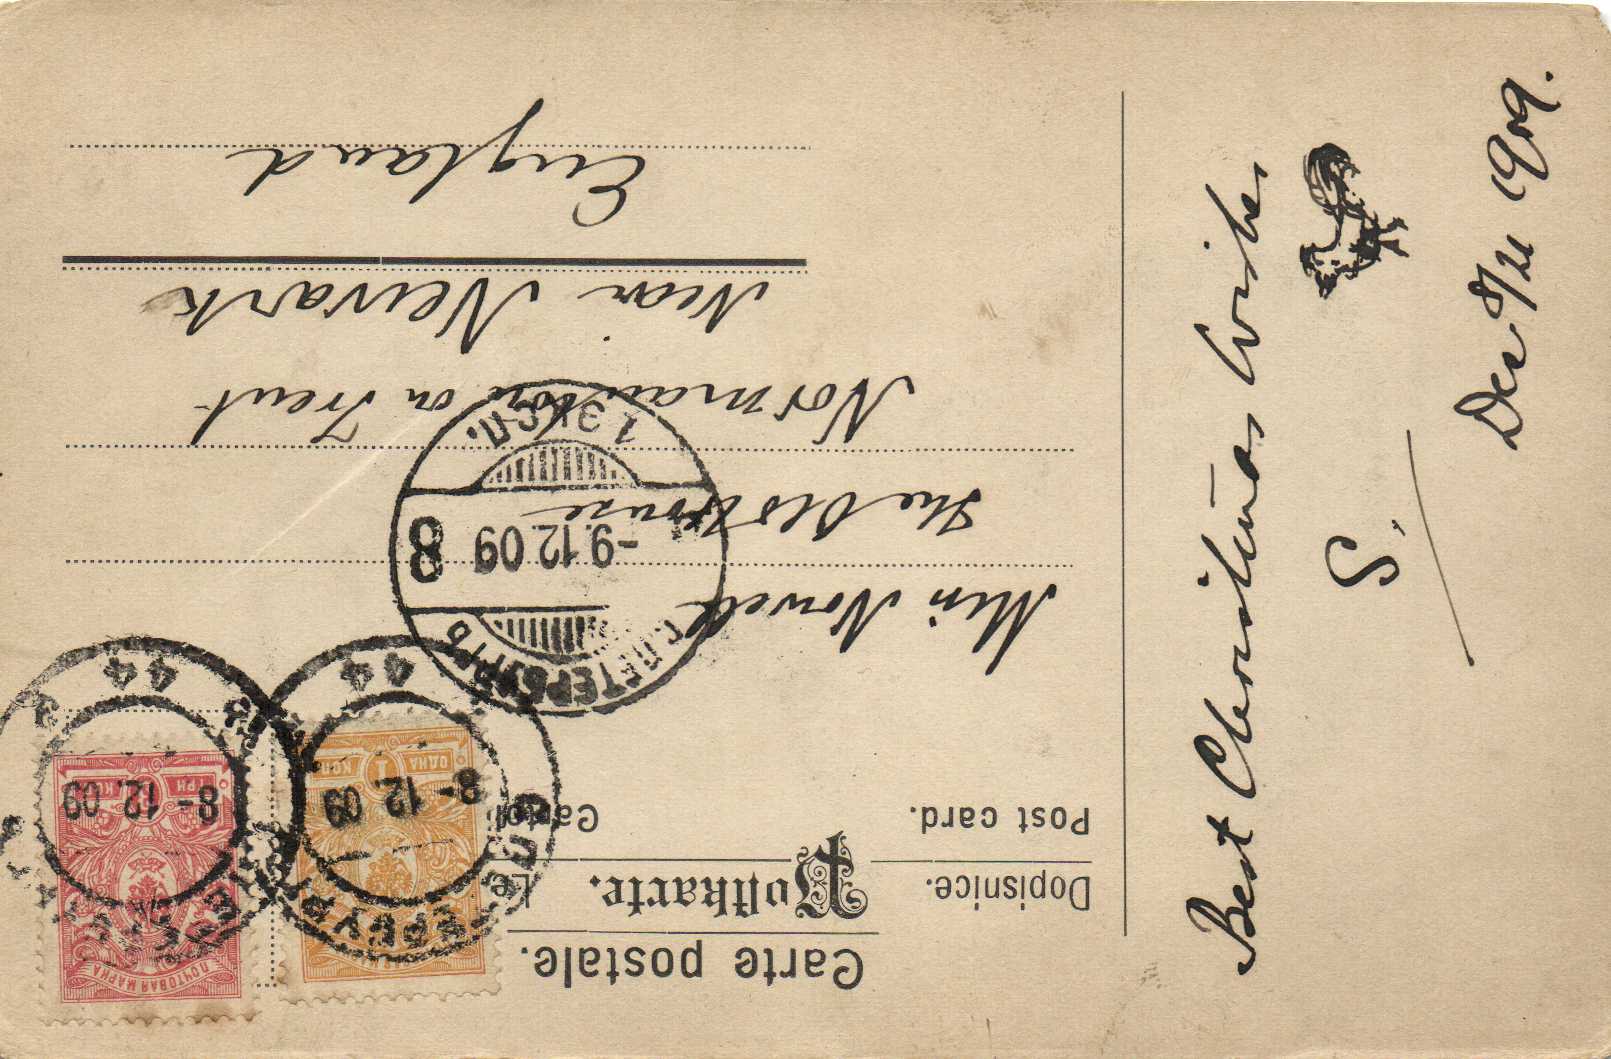 Carte postale.
Dopisnice.
Postkarte.
Post card.
ПОЧТОВАЯ МАРКА
ОДНА 1 КОП
8-12.09
44
ПОЧТОВАЯ МАРКА
ТРИ КОП
8-12.09
44
С.ПЕТЕРБУРГЪ
-9.12.09 8
1 ЭКСП.
Miss Nowell
The Old House
Normanton on Trent
Near Newark
England
Best Christmas Wishes
S.
Dec 8/21 1909.